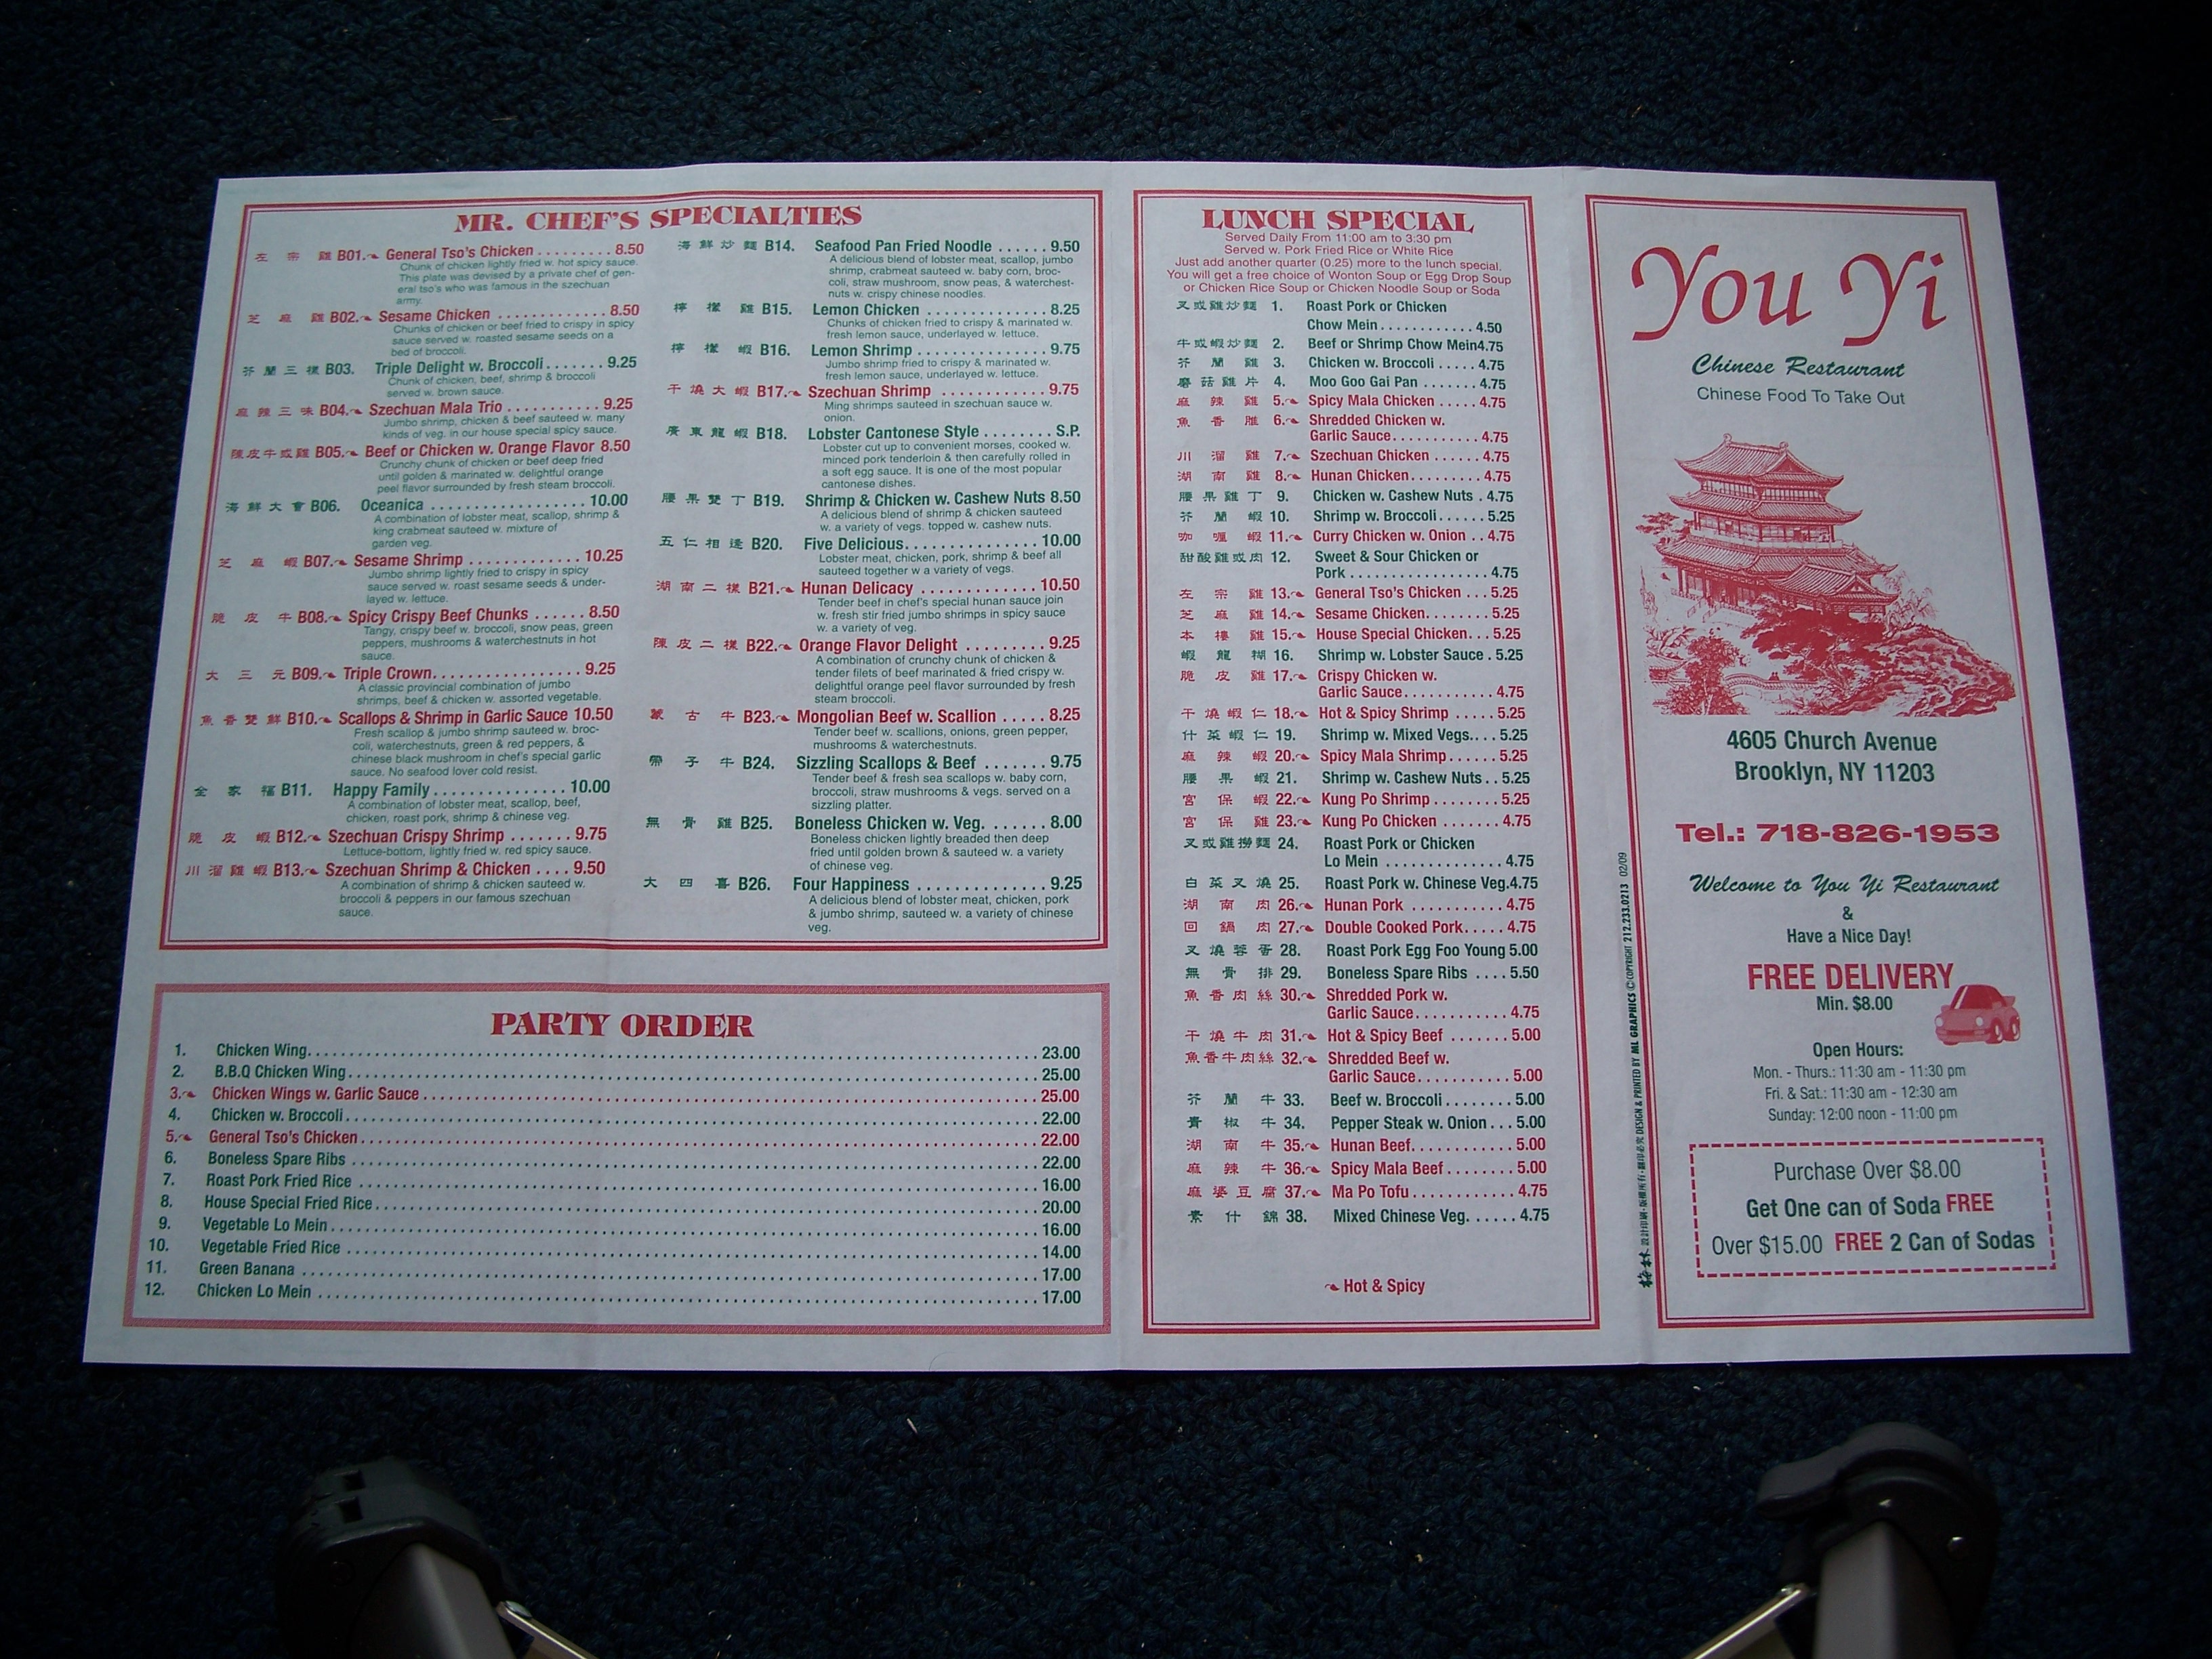 MR. CHEF'S SPECIALTIES
左 宗 雞 B01. General Tso's Chicken . . . . . . . . . 8.50
Chunk of chicken lightly fried w. hot spicy sauce.
This plate was devised by a private chef of gen-
eral tso's who was famous in the szechuan
army.
芝 麻 雞 B02. Sesame Chicken . . . . . . . . . . . . 8.50
Chunks of chicken or beef fried to crispy in spicy
sauce served w. roasted sesame seeds on a
bed of broccoli.
芥 蘭 三 樣 B03. Triple Delight w. Broccoli . . . . . . . 9.25
Chunk of chicken, beef, shrimp & broccoli
served w. brown sauce.
麻 辣 三 味 B04. Szechuan Mala Trio . . . . . . . . . . . 9.25
Jumbo shrimp, chicken & beef sauteed w. many
kinds of veg. in our house special spicy sauce.
陳皮牛或雞 B05. Beef or Chicken w. Orange Flavor 8.50
Crunchy chunk of chicken or beef deep fried
until golden & marinated w. delightful orange
peel flavor surrounded by fresh steam broccoli.
海 鮮 大 會 B06. Oceanica . . . . . . . . . . . . . . . . . . 10.00
A combination of lobster meat, scallop, shrimp &
king crabmeat sauteed w. mixture of
garden veg.
芝 麻 蝦 B07. Sesame Shrimp . . . . . . . . . . . . 10.25
Jumbo shrimp lightly fried to crispy in spicy
sauce served w. roast sesame seeds & under-
layed w. lettuce.
脆 皮 牛 B08. Spicy Crispy Beef Chunks . . . . . . 8.50
Tangy, crispy beef w. broccoli, snow peas, green
peppers, mushrooms & waterchestnuts in hot
sauce.
大 三 元 B09. Triple Crown. . . . . . . . . . . . . . . . . 9.25
A classic provincial combination of jumbo
shrimps, beef & chicken w. assorted vegetable.
魚 香 雙 鮮 B10. Scallops & Shrimp in Garlic Sauce 10.50
Fresh scallop & jumbo shrimp sauteed w. broc-
coli, waterchestnuts, green & red peppers, &
chinese black mushroom in chef's special garlic
sauce. No seafood lover cold resist.
全 家 福 B11. Happy Family . . . . . . . . . . . . . . . 10.00
A combination of lobster meat, scallop, beef,
chicken, roast pork, shrimp & chinese veg.
脆 皮 蝦 B12. Szechuan Crispy Shrimp . . . . . . . 9.75
Lettuce-bottom, lightly fried w. red spicy sauce.
川 溜 雞 蝦 B13. Szechuan Shrimp & Chicken . . . . 9.50
A combination of shrimp & chicken sauteed w.
broccoli & peppers in our famous szechuan
sauce.
海 鮮 炒 麵 B14. Seafood Pan Fried Noodle . . . . . . 9.50
A delicious blend of lobster meat, scallop, jumbo
shrimp, crabmeat sauteed w. baby corn, broc-
coli, straw mushroom, snow peas, & waterchest-
nuts w. crispy chinese noodles.
檸 檬 雞 B15. Lemon Chicken . . . . . . . . . . . . . . 8.25
Chunks of chicken fried to crispy & marinated w.
fresh lemon sauce, underlayed w. lettuce.
檸 檬 蝦 B16. Lemon Shrimp . . . . . . . . . . . . . . . 9.75
Jumbo shrimp fried to crispy & marinated w.
fresh lemon sauce, underlayed w. lettuce.
干 燒 大 蝦 B17. Szechuan Shrimp . . . . . . . . . . . . 9.75
Ming shrimps sauteed in szechuan sauce w.
onion.
廣 東 龍 蝦 B18. Lobster Cantonese Style . . . . . . . . S.P.
Lobster cut up to convenient morses, cooked w.
minced pork tenderloin & then carefully rolled in
a soft egg sauce. It is one of the most popular
cantonese dishes.
腰 果 雙 丁 B19. Shrimp & Chicken w. Cashew Nuts 8.50
A delicious blend of shrimp & chicken sauteed
w. a variety of vegs. topped w. cashew nuts.
五 仁 相 逢 B20. Five Delicious. . . . . . . . . . . . . . . 10.00
Lobster meat, chicken, pork, shrimp & beef all
sauteed together w a variety of vegs.
湖 南 二 樣 B21. Hunan Delicacy . . . . . . . . . . . . . 10.50
Tender beef in chef's special hunan sauce join
w. fresh stir fried jumbo shrimps in spicy sauce
w. a variety of veg.
陳 皮 二 樣 B22. Orange Flavor Delight . . . . . . . . . 9.25
A combination of crunchy chunk of chicken &
tender filets of beef marinated & fried crispy w.
delightful orange peel flavor surrounded by fresh
steam broccoli.
蒙 古 牛 B23. Mongolian Beef w. Scallion . . . . . 8.25
Tender beef w. scallions, onions, green pepper,
mushrooms & waterchestnuts.
帶 子 牛 B24. Sizzling Scallops & Beef . . . . . . . 9.75
Tender beef & fresh sea scallops w. baby corn,
broccoli, straw mushrooms & vegs. served on a
sizzling platter.
無 骨 雞 B25. Boneless Chicken w. Veg. . . . . . . . 8.00
Boneless chicken lightly breaded then deep
fried until golden brown & sauteed w. a variety
of chinese veg.
大 四 喜 B26. Four Happiness . . . . . . . . . . . . . . 9.25
A delicious blend of lobster meat, chicken, pork
& jumbo shrimp, sauteed w. a variety of chinese
veg.
PARTY ORDER
1. Chicken Wing. . . . . . . . . . 23.00
2. B.B.Q Chicken Wing . . . . . . . . . . 25.00
3. Chicken Wings w. Garlic Sauce . . . . . . . . . . 25.00
4. Chicken w. Broccoli . . . . . . . . . . 22.00
5. General Tso's Chicken . . . . . . . . . . 22.00
6. Boneless Spare Ribs . . . . . . . . . . 22.00
7. Roast Pork Fried Rice . . . . . . . . . . 16.00
8. House Special Fried Rice . . . . . . . . . . 20.00
9. Vegetable Lo Mein . . . . . . . . . . 16.00
10. Vegetable Fried Rice . . . . . . . . . . 14.00
11. Green Banana . . . . . . . . . . 17.00
12. Chicken Lo Mein . . . . . . . . . . 17.00
LUNCH SPECIAL
Served Daily From 11:00 am to 3:30 pm
Served w. Pork Fried Rice or White Rice
Just add another quarter (0.25) more to the lunch special,
You will get a free choice of Wonton Soup or Egg Drop Soup
or Chicken Rice Soup or Chicken Noodle Soup or Soda
叉或雞炒麵 1. Roast Pork or Chicken
Chow Mein . . . . . . . . . . . . 4.50
牛或蝦炒麵 2. Beef or Shrimp Chow Mein4.75
芥 蘭 雞 3. Chicken w. Broccoli . . . . . 4.75
蘑 菇 雞 片 4. Moo Goo Gai Pan . . . . . . . 4.75
麻 辣 雞 5. Spicy Mala Chicken . . . . . 4.75
魚 香 雞 6. Shredded Chicken w.
Garlic Sauce. . . . . . . . . . . 4.75
川 溜 雞 7. Szechuan Chicken . . . . . . 4.75
湖 南 雞 8. Hunan Chicken. . . . . . . . . 4.75
腰 果 雞 丁 9. Chicken w. Cashew Nuts . 4.75
芥 蘭 蝦 10. Shrimp w. Broccoli . . . . . . 5.25
咖 喱 雞 11. Curry Chicken w. Onion . . 4.75
甜酸雞或肉 12. Sweet & Sour Chicken or
Pork . . . . . . . . . . . . . . . . . 4.75
左 宗 雞 13. General Tso's Chicken . . . 5.25
芝 麻 雞 14. Sesame Chicken. . . . . . . . 5.25
本 樓 雞 15. House Special Chicken. . . 5.25
蝦 龍 糊 16. Shrimp w. Lobster Sauce . 5.25
脆 皮 雞 17. Crispy Chicken w.
Garlic Sauce. . . . . . . . . . . 4.75
干 燒 蝦 仁 18. Hot & Spicy Shrimp . . . . . 5.25
什 菜 蝦 仁 19. Shrimp w. Mixed Vegs. . . . 5.25
麻 辣 蝦 20. Spicy Mala Shrimp . . . . . . 5.25
腰 果 蝦 21. Shrimp w. Cashew Nuts . . 5.25
宮 保 蝦 22. Kung Po Shrimp . . . . . . . . 5.25
宮 保 雞 23. Kung Po Chicken . . . . . . . 4.75
叉或雞撈麵 24. Roast Pork or Chicken
Lo Mein . . . . . . . . . . . . . . 4.75
白 菜 叉 燒 25. Roast Pork w. Chinese Veg.4.75
湖 南 肉 26. Hunan Pork . . . . . . . . . . . 4.75
回 鍋 肉 27. Double Cooked Pork. . . . . 4.75
叉 燒 蓉 蛋 28. Roast Pork Egg Foo Young 5.00
無 骨 排 29. Boneless Spare Ribs . . . . 5.50
魚 香 肉 絲 30. Shredded Pork w.
Garlic Sauce. . . . . . . . . . . 4.75
干 燒 牛 肉 31. Hot & Spicy Beef . . . . . . . 5.00
魚香牛肉絲 32. Shredded Beef w.
Garlic Sauce. . . . . . . . . . . 5.00
芥 蘭 牛 33. Beef w. Broccoli . . . . . . . . 5.00
青 椒 牛 34. Pepper Steak w. Onion . . . 5.00
湖 南 牛 35. Hunan Beef. . . . . . . . . . . . 5.00
麻 辣 牛 36. Spicy Mala Beef . . . . . . . . 5.00
麻 婆 豆 腐 37. Ma Po Tofu . . . . . . . . . . . . 4.75
素 什 錦 38. Mixed Chinese Veg. . . . . . 4.75
Hot & Spicy
DESIGN & PRINTED BY ML GRAPHICS © COPYRIGHT 212.233.0213 02/09
You Yi
Chinese Restaurant
Chinese Food To Take Out
4605 Church Avenue
Brooklyn, NY 11203
Tel.: 718-826-1953
Welcome to You Yi Restaurant
&
Have a Nice Day!
FREE DELIVERY
Min. $8.00
Open Hours:
Mon. - Thurs.: 11:30 am - 11:30 pm
Fri. & Sat.: 11:30 am - 12:30 am
Sunday: 12:00 noon - 11:00 pm
Purchase Over $8.00
Get One can of Soda FREE
Over $15.00 FREE 2 Can of Sodas